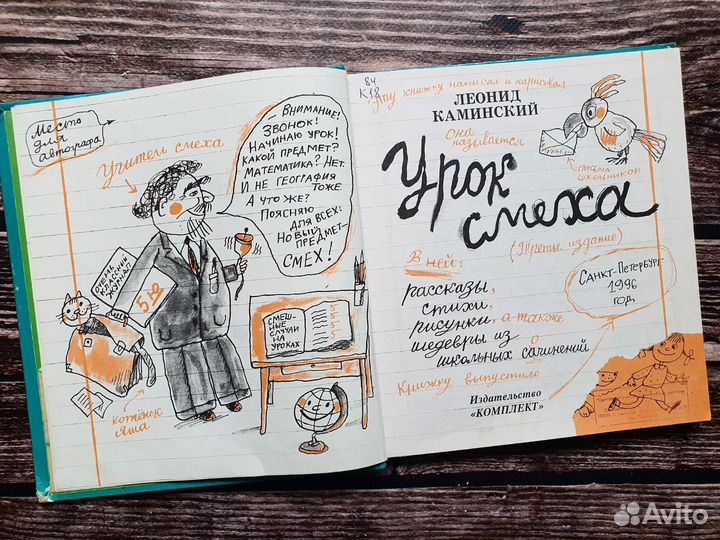 Место
для
автографа
Учитель смеха
– Внимание!
Звонок!
Начинаю урок!
Какой предмет?
Математика? Нет.
И не география
тоже.
А что же?
Поясняю
для всех:
Новый
предмет–
смех!
5 1/2
Смеш-
ные
случаи
на
уроках
5
5
5
5
котёнок
Яша
84
К18
Эту книжку написал и нарисовал
ЛЕОНИД
КАМИНСКИЙ
Она
называется
Урок
смеха
письма
школьников
(Третье издание)
В ней:
рассказы,
стихи,
рисунки, а также
шедевры из
школьных сочинений
Санкт-Петербург
1996
год
Книжку выпустило
Издательство
«КОМПЛЕКТ»
Avito